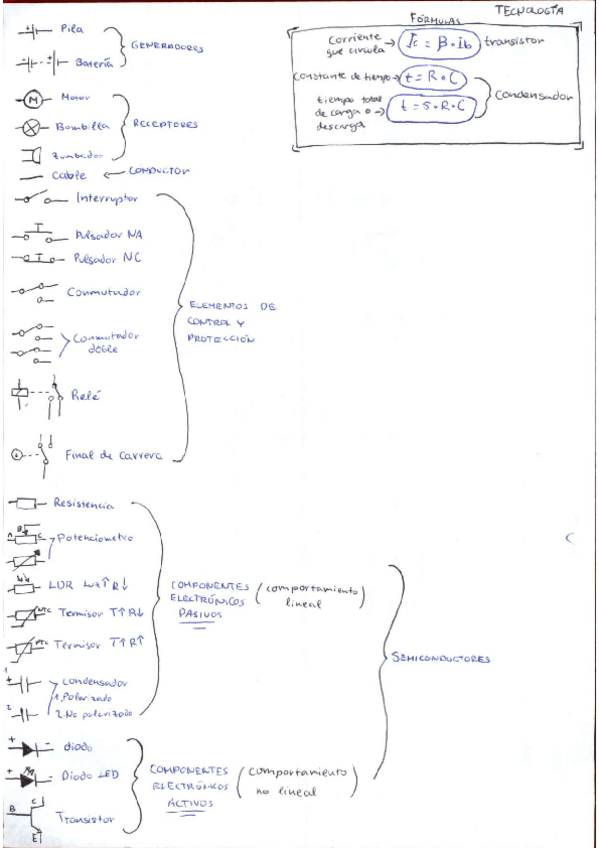 TECNOLOGÍA
FÓRMULAS
corriente que circula → Ic = β · Ib transistor
constante de tiempo → t = R · C
tiempo total de carga o descarga → t = 5 · R · C
Condensador
Pila
Batería
GENERADORES
M Motor
Bombilla
Zumbador
RECEPTORES
Cable ← CONDUCTOR
Interruptor
Pulsador NA
Pulsador NC
Conmutador
Conmutador doble
Relé
Final de carrera
ELEMENTOS DE
CONTROL Y
PROTECCIÓN
Resistencia
A B C Potenciometro
LDR Luz↑ R↓
NTC Termisor T↑ R↓
PTC Termisor T↑ R↑
1 + Condensador
1. Polarizado
2 2. No polarizado
COMPONENTES
ELECTRÓNICOS
PASIVOS
(comportamiento
lineal)
+ - diodo
+ - Diodo LED
B C E Transistor
COMPONENTES
ELECTRÓNICOS
ACTIVOS
(comportamiento
no lineal)
SEMICONDUCTORES